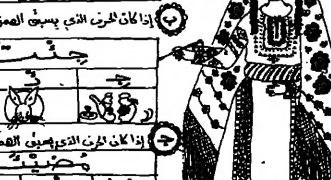 ب إذا كان الحرف الذي يسبق الهمز
جئت
جـ
جـ إذا كان الحرف الذي يسبق الهمز